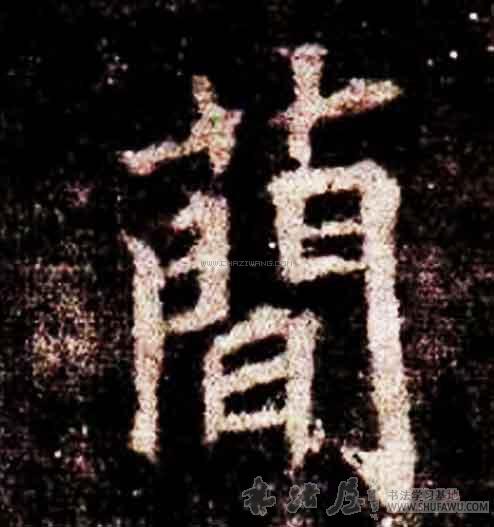 蕳
WWW.CHAZIWANG.COM
书法学习基地
WWW.SHUFAWU.COM